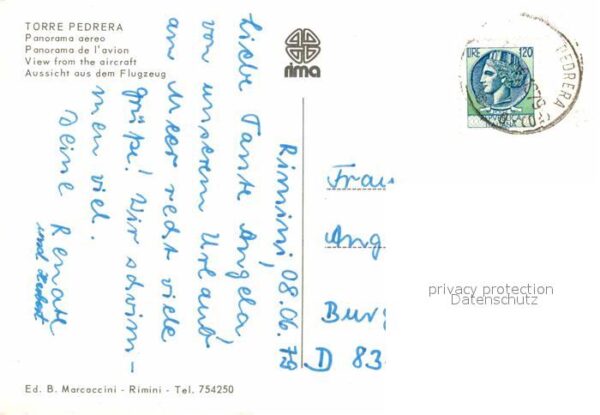 TORRE PEDRERA
Panorama aereo
Panorama de l'avion
View from the aircraft
Aussicht aus dem Flugzeug
rima
LIRE 120
PEDRERA
Rimini, 08.06.79
Liebe Tante Angela,
von unserem Urlaub
am Meer recht viele
grüße! Wir schwim-
men viel.
Deine Renate
und Herbert
Frau
Ang
Bur
D 83
privacy protection
Datenschutz
Ed. B. Marcaccini - Rimini - Tel. 754250